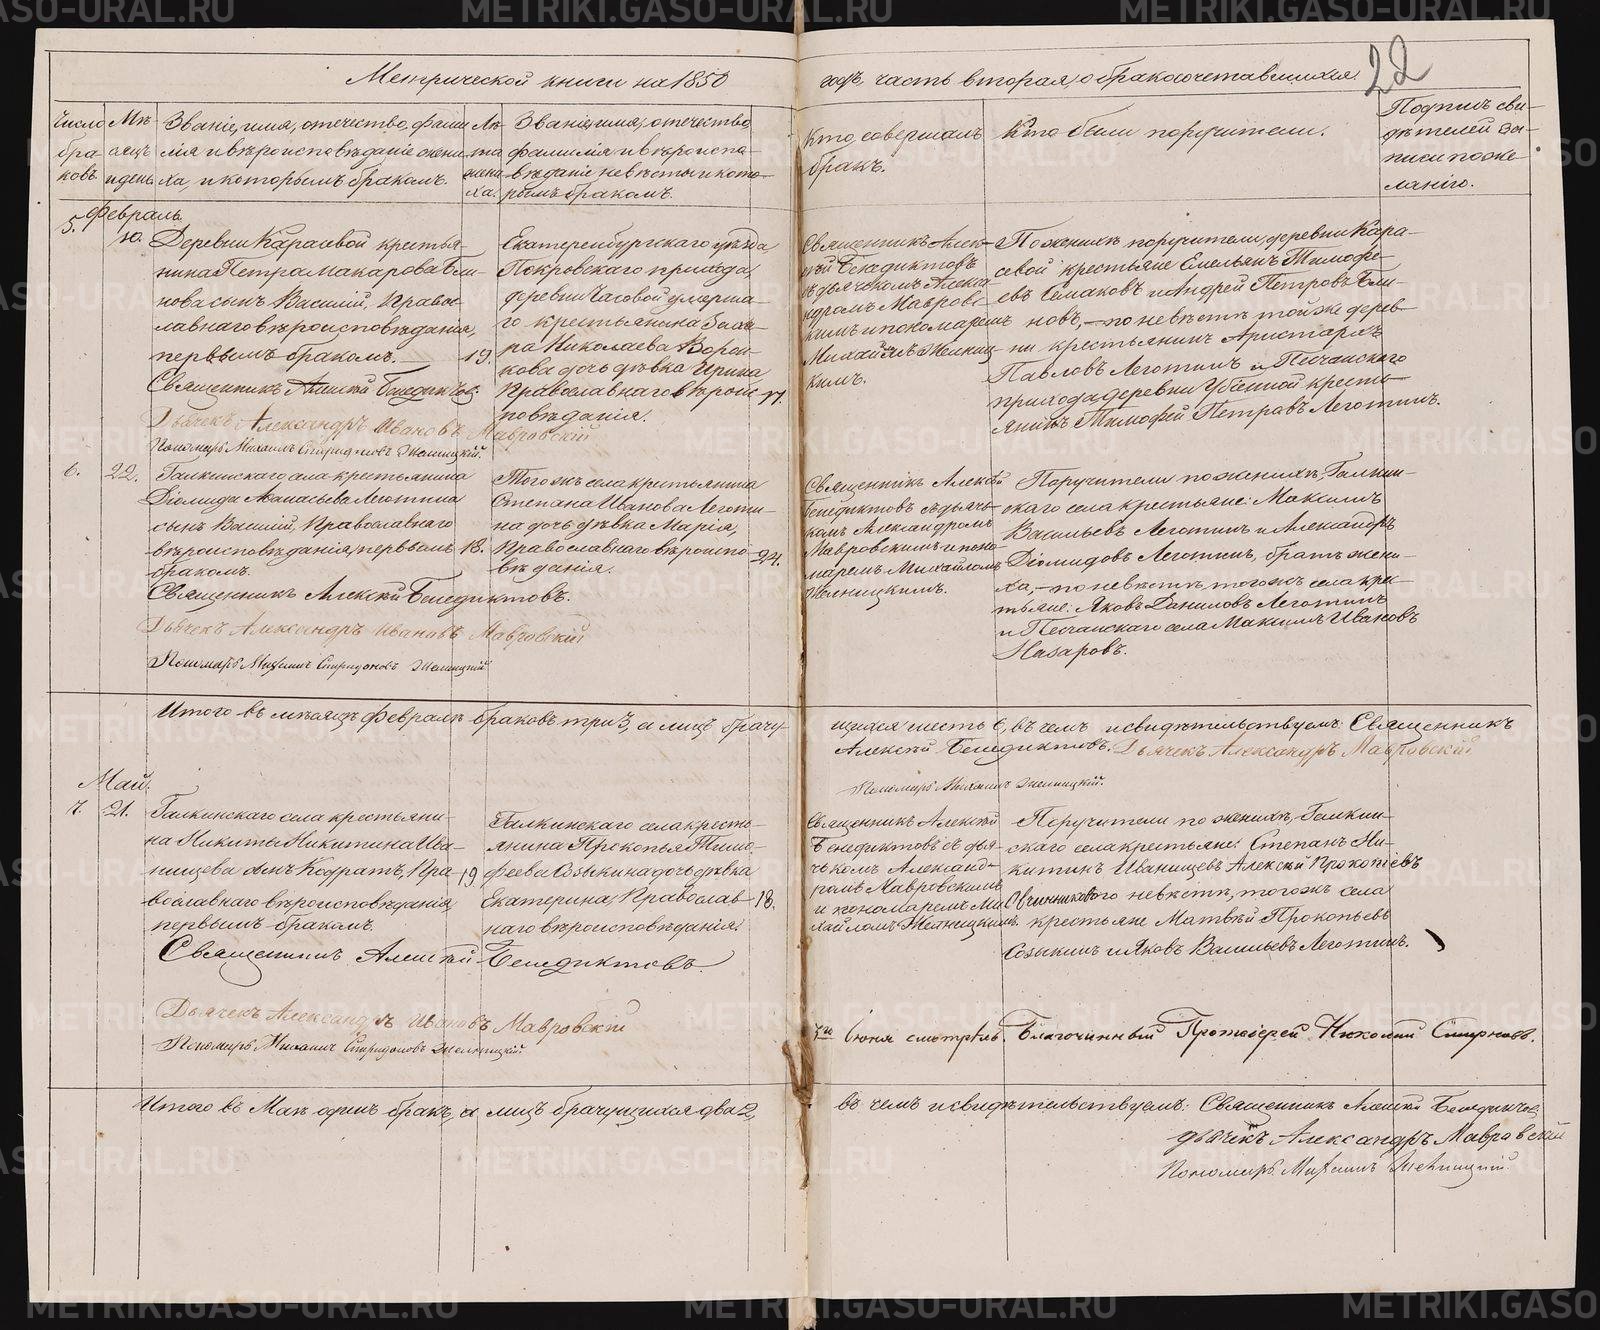 Метрической книги на 1850
годъ, часть вторая, о бракосочетавшихся.
22
Число бра- ковъ.
Мѣ- сяцъ и день
Званіе, имя, отечество, фами-
лія и вѣроисповѣданіе жени-
ха, и которымъ бракомъ.
Лѣ- та жени- ха.
Званіе, имя, отечество,
фамилія и вѣроиспо-
вѣданіе невѣсты и кото-
рымъ бракомъ.
Кто совершалъ
бракъ.
Кто были поручители.
Подпись сви-
дѣтелей за-
писи по же-
ланію.
Февраль
5.
10.
Деревни Карасевой кресть-
янина Петра Макарова Бли-
нова сынъ Василій, Право-
славнаго вѣроисповѣданія,
первымъ бракомъ.
19.
Священникъ Алексѣй Бенедиктовъ
Дьячекъ Александръ Ивановъ Мавровскій
Пономарь Михаилъ Спиридоновъ Желницкій.
Екатеренбургскаго уѣзда,
Покровскаго прихода,
деревни Часовой умерша-
го крестьянина Заха-
ра Николаева Ворон-
кова дочь дѣвка Ирина
Православнаго вѣроис-
повѣданія.
17.
Священникъ Алек-
сѣй Бенедиктовъ
съ дьячкомъ Алекса-
ндромъ Мавровс-
кимъ и пономаремъ
Михайломъ Желниц-
кимъ.
По женихѣ поручители, деревни Кара-
севой крестьяне Емельянъ Тимофе-
евъ Семаковъ и Андрей Петровъ Бли-
новъ, — по невѣстѣ той же дерев-
ни крестьянинъ Аристархъ
Павловъ Леготинъ и Песчанскаго
прихода деревни Убенной кресть-
янинъ Тимофей Петровъ Леготинъ.
6.
22.
Галкинскаго села крестьянина
Діомида Аѳанасьева Леготина
сынъ Василій, Православнаго
вѣроисповѣданія, первымъ
бракомъ.
18.
Священникъ Алексѣй Бенедиктовъ.
Дьячекъ Александръ Ивановъ Мавровскій
Пономарь Михаилъ Спиридоновъ Желницкій
Того жъ села крестьянина
Степана Иванова Леготи-
на дочь дѣвка Марія,
Православнаго вѣроиспо-
вѣданія.
24.
Священникъ Алексѣй
Бенедиктовъ съ дьяч-
комъ Александромъ
Мавровскимъ и поно-
маремъ Михайломъ
Желницкимъ.
Поручители по женихѣ, Галкин-
скаго села крестьяне: Максимъ
Васильевъ Леготинъ и Александръ
Діомидовъ Леготинъ, братъ жени-
ха, — по невѣстѣ, того жъ села кре-
стьяне: Яковъ Даниловъ Леготинъ
и Песчанскаго села Максимъ Ивановъ
Назаровъ.
Итого въ мѣсяцѣ Февралѣ браковъ три 3, а лицъ брачу-
щихся шесть 6, въ чемъ и свидѣтельствуемъ: Священникъ
Алексѣй Бенедиктовъ. Дьячекъ Александръ Мавровскій
Пономарь Михаилъ Желницкій.
Май.
7.
21.
Галкинскаго села крестьяни-
на Никиты Никитина Ива-
нищева сынъ Кодратъ, Пра-
вославнаго вѣроисповѣданія,
первымъ бракомъ.
19
Священникъ Алексѣй Бенедиктовъ.
Дьячекъ Александръ Ивановъ Мавровскій
Пономарь Михаилъ Спиридоновъ Желницкій
Галкинскаго села кресть-
янина Прокопья Тимо-
феева Созыкина дочь дѣвка
Екатерина, Православ-
наго вѣроисповѣданія.
18.
Священникъ Алексѣй
Бенедиктовъ съ дья-
чкомъ Александ-
ромъ Мавровскимъ
и пономаремъ Ми-
хайломъ Желницкимъ.
Поручители по женихѣ, Галкин-
скаго села крестьяне: Степанъ Ни-
китинъ Иванищевъ Алексѣй Прокопіевъ
Овчинниковъ по невѣстѣ, того жъ села
крестьяне Матвѣй Прокопьевъ
Созыкинъ и Яковъ Васильевъ Леготинъ.
Іюня смотрѣлъ. Благочинный Протоіерей Николай Смирновъ.
Итого въ Маѣ одинъ бракъ, а лицъ брачущихся два 2,
въ чемъ и свидѣтельствуемъ: Священникъ Алексѣй Бенедиктовъ
дьячекъ Александръ Мавровскій
Пономарь Михаилъ Желницкій.